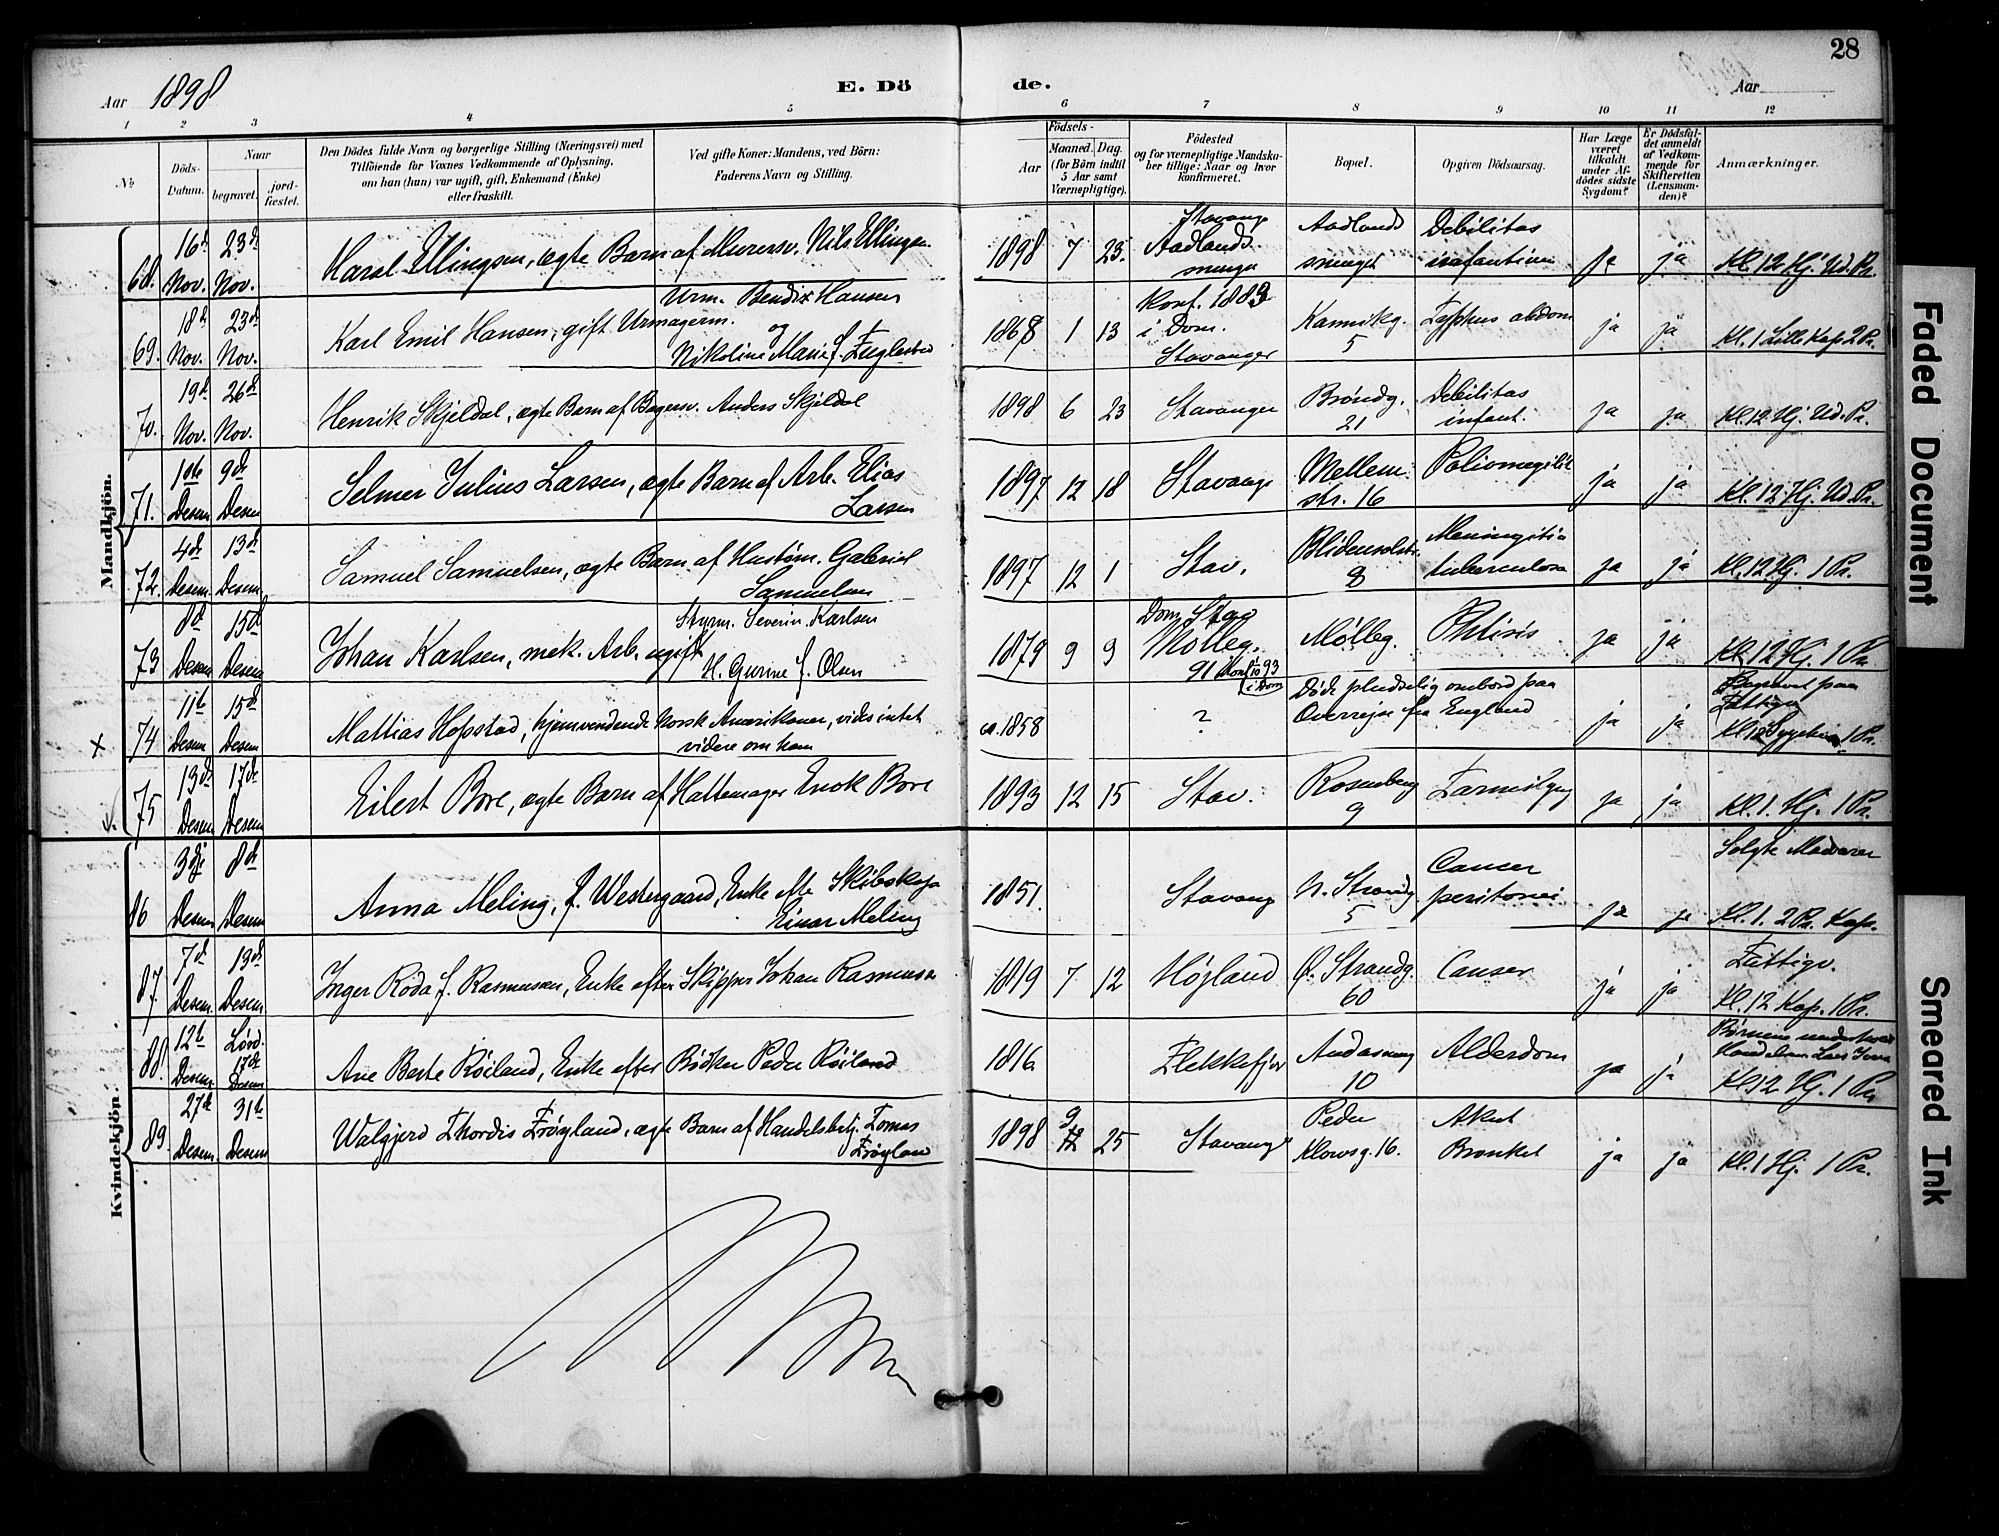 28
Aar 1898
E. Dö de.
Aar
1 2 3 4 5 6 7 8 9 10 11 12
№
Döds-Datum.
Naar
begravet.
jord-fæstet.
Den Dödes fulde Navn og borgerlige Stilling (Næringsvei) med
Tilföiende for Voxnes Vedkommende af Oplysning,
om han (hun) var ugift, gift, Enkemand (Enke)
eller fraskilt.
Ved gifte Koner: Mandens, ved Börn:
Faderens Navn og Stilling.
Födsels-
Aar
Maaned. Dag.
(for Börn indtil
5 Aar samt
Værnepligtige).
Födested
og for værnepligtige Mandska-
ber tillige: Naar og hvor
konfirmeret.
Bopæl.
Opgiven Dödsaarsag.
Har Læge
været
tilkaldt
under Af-
dödes sidste
Sygdom?
Er Dödsfal-
det anmeldt
af Vedkom-
mende for
Skifteretten
(Lensman-
den)?
Anmærkninger.
Mandkjön.
68. 16d Nov. 23d Nov. Haral Ellingsen, ægte Barn af Murersv. Nils Ellingsen 1898 7 23. Stavang Aadlands Aadlands smuget Debilitas ja ja Kl. 12 Hj. Ud. Pr.
69. 18d Nov. 23d Nov. Karl Emil Hansen, gift Urmagerm. Urm. Bendix Hansen og Nikoline Marie f. 1868 1 13 Konf. 1883 i Dom. Stavanger Kannikg. 5 Typhus abdom ja ja Kl. 1 Lille Kap 2 Pr.
70. 19d Nov. 26d Nov. Henrik Skjeldal, ægte Barn af Bagersv. Anders Skjeldal 1898 6 23 Stavanger Bröndg. 21 Debilitas infant. ja ja Kl. 12 Hj. Ud. Pr.
71. 1ste Desem 9d Desem Selmer Julius Larsen, ægte Barn af Arb. Elias Larsen 1897 12 18 Stavang Mellem str. 16 ja ja Kl. 12 Hj. Ud. Pr.
72. 4d Desem. 13d Desem. Samuel Samuelsen, ægte Barn af Hustöm. Gabriel Samuelsen 1897 12 1 Stav. Blidensolstr. 8 Meningitis tuberculosa ja ja Kl. 12 Hj. 1 Pr.
73 8d Desem 15d Desem Johan Karlsen, mek. Arb. ugift Styrm. Severin Karlsen H. Gurine f. Olsen 1879 9 9 Dom Stav Mölleg. 91 Konf. 93 i Dom Mölleg. Phtisis ja ja Kl. 12 Hj. 1 Pr.
x 74 11te Desem 15d Desem Mattias Hopstad, hjemvendende norsk Amerikaner, vides intet videre om ham ca. 1858 ? Döde pludselig ombord paa Overrejse fra England ja ja Begravet paa Fattigv Kl 12 1 Pr.
75 13d Desem 17d Desem Eilert Bore, ægte Barn af Hattemager Enok Bore 1893 12 15 Stav. Rosenberg 9 ja ja Kl. 1. Hj. 1 Pr.
Kvindekjön.
86 3dje Desem 8d Desem Anna Meling, f. Westergaard, Enke efte Skibskap Einar Meling 1851. Stavang N. Strandg 5 Canser peritonei. ja ja Solgte Madvarer Kl. 1. 2 Pr. Kap.
87 7d Desem. 13d Desem Inger Roda f. Rasmussen, Enke efter Skipper Johan Rasmussen 1819 7 12 Höjland Ö. Strandg. 60 Canser ja ja Fattigv. Kl. 12 Kap. 1 Pr.
88. 12te Desem Lövd. 17de Desem Ane Berte Röiland, Enke efter Bödker Peder Röiland 1816 Flekkefjor 10 Alderdom ja ja Kl 12 Hj. 1 Pr
89. 27de Desem. 31te Desem Walgjerd Thordis Fröyland, ægte Barn af Handelsbetj. Tomas Fröyland 1898 9 25 Stavang Peder Klowsg. 16. Akut Bronkit ja ja Kl. 1 Hj. 1 Pr.
Faded Document
Smeared Ink